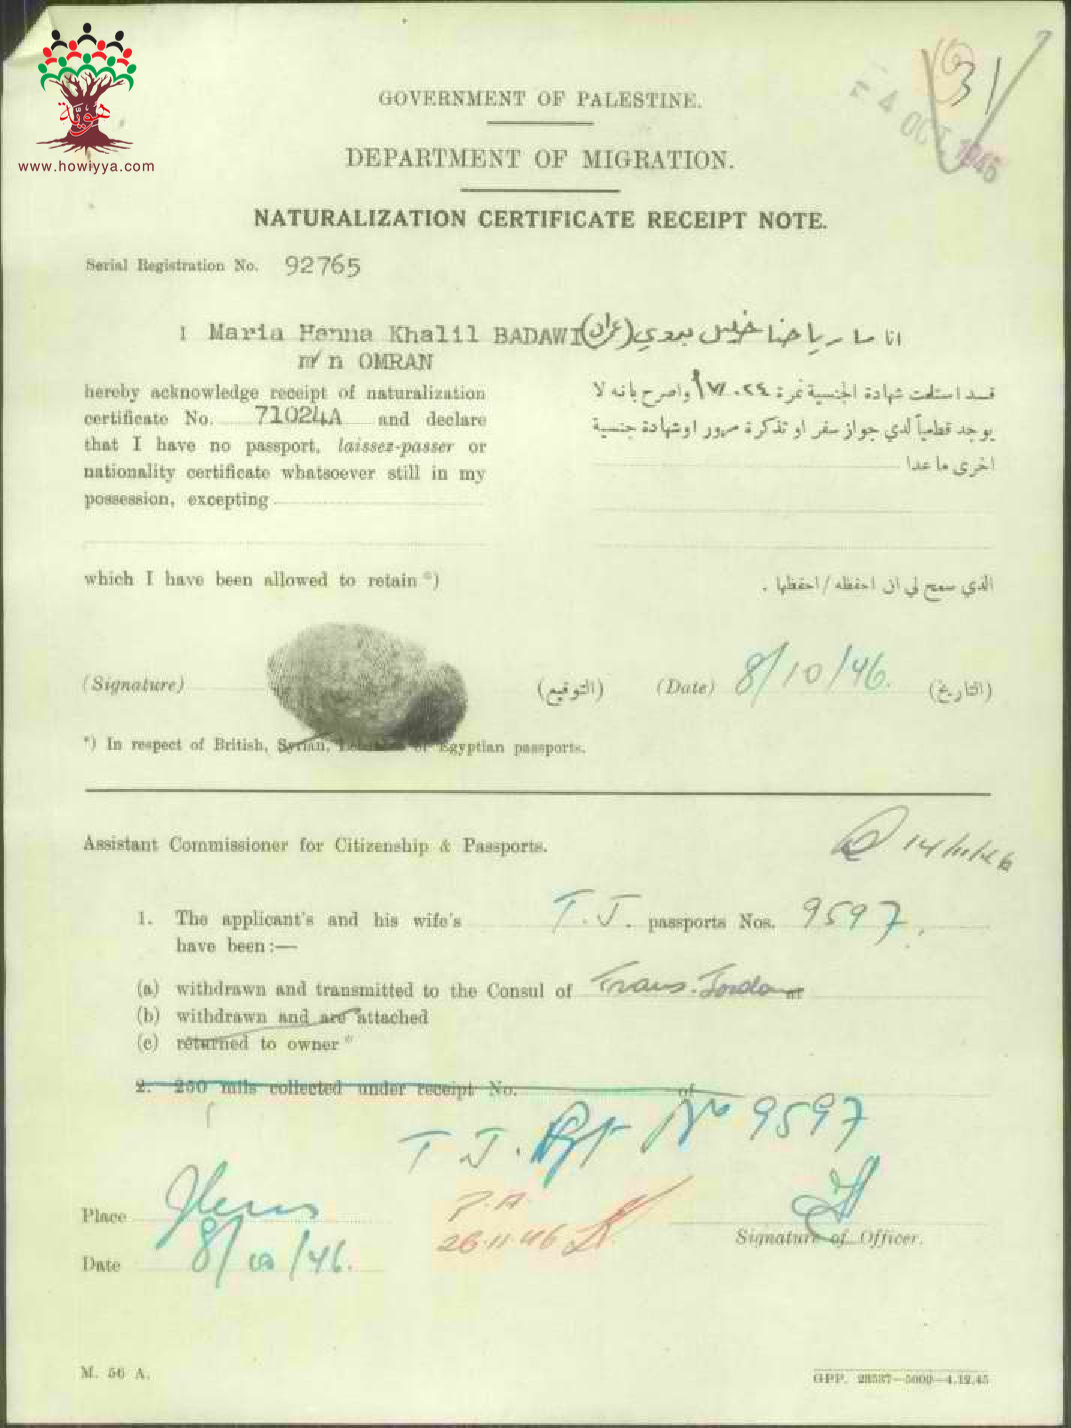 هويّة
www.howiyya.com
31
24 OCT 1946
GOVERNMENT OF PALESTINE.
DEPARTMENT OF MIGRATION.
NATURALIZATION CERTIFICATE RECEIPT NOTE.
Serial Registration No. 92765
I Maria Hanna Khalil BADAWI
انا ماريا حنا خليل بدوي (عمران)
m/n OMRAN
hereby acknowledge receipt of naturalization
certificate No. 71024A and declare
that I have no passport, laissez-passer or
nationality certificate whatsoever still in my
possession, excepting
قد استلمت شهادة الجنسية نمرة ٧١٠٢٤ واصرح بانه لا
يوجد قطعياً لدي جواز سفر او تذكرة مرور او شهادة جنسية
اخرى ما عدا
which I have been allowed to retain *)
الذي سمح لي ان احفظه / احفظها .
(Signature) (التوقيع) (Date) 8/10/46. (التاريخ)
*) In respect of British, Syrian, or Egyptian passports.
Assistant Commissioner for Citizenship & Passports.
14/11/46
1. The applicant's and his wife's T.J. passports Nos. 9597.
have been:—
(a) withdrawn and transmitted to the Consul of Trans-Jordan at
(b) withdrawn and are attached
(c) returned to owner *
2. 250 mils collected under receipt No. of
T.J. Ppt No 9597
Place
Date 8/10/46.
P.A
26.11.46
Signature of Officer.
M. 56 A.
GPP. 28537—5000—4.12.45